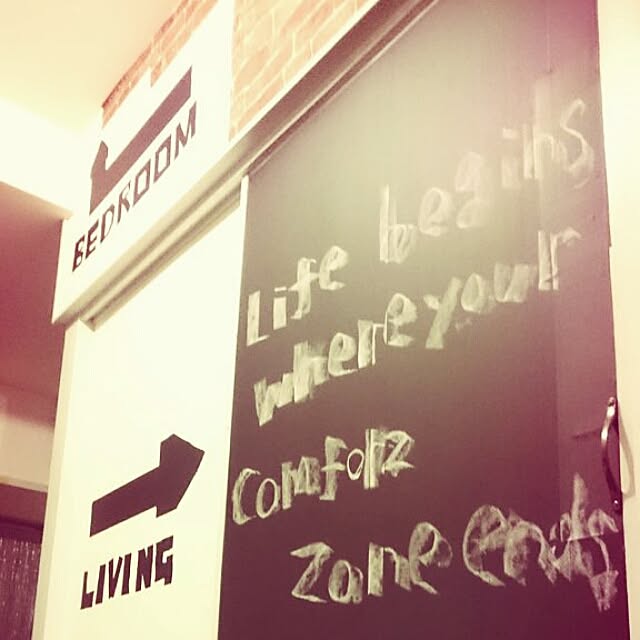 BEDROOM
LIVING
Life begins
where your
Comforz
Zone ends